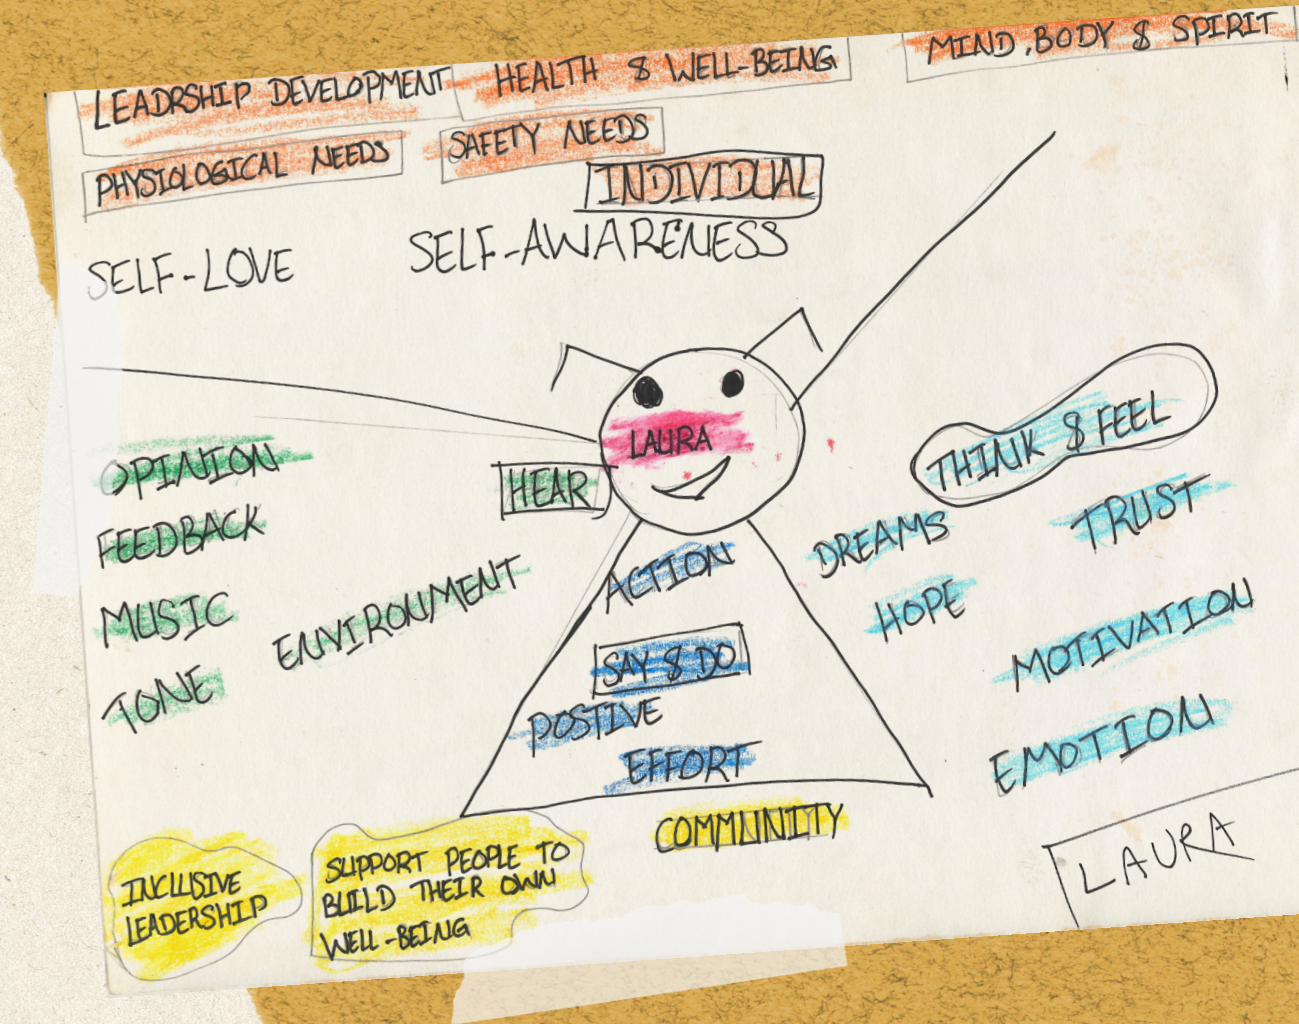 LEADRSHIP DEVELOPMENT
HEALTH & WELL-BEING
MIND, BODY & SPIRIT
PHYSIOLOGICAL NEEDS
SAFETY NEEDS
INDIVIDUAL
SELF-LOVE
SELF-AWARENESS
LAURA
OPINION
HEAR
FEEDBACK
MUSIC
ENVIRONMENT
TONE
THINK & FEEL
DREAMS
TRUST
HOPE
MOTIVATION
EMOTION
ACTION
SAY & DO
POSTIVE
EFFORT
COMMUNITY
INCLUSIVE
LEADERSHIP
SUPPORT PEOPLE TO
BUILD THEIR OWN
WELL-BEING
LAURA